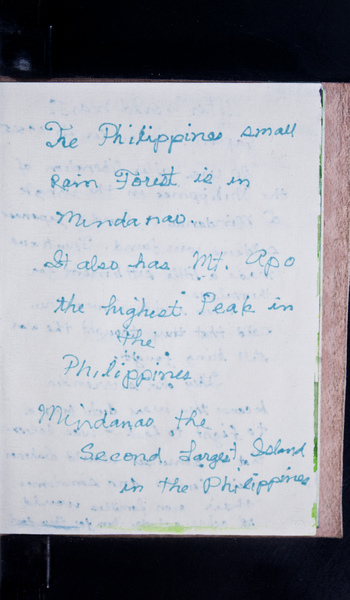 The Philippines small
Rain Forest is in
Mindanao.
It also has Mt. Apo
the highest Peak in
the
Philippines
Mindanao the
Second Largest Island
in the Philippines